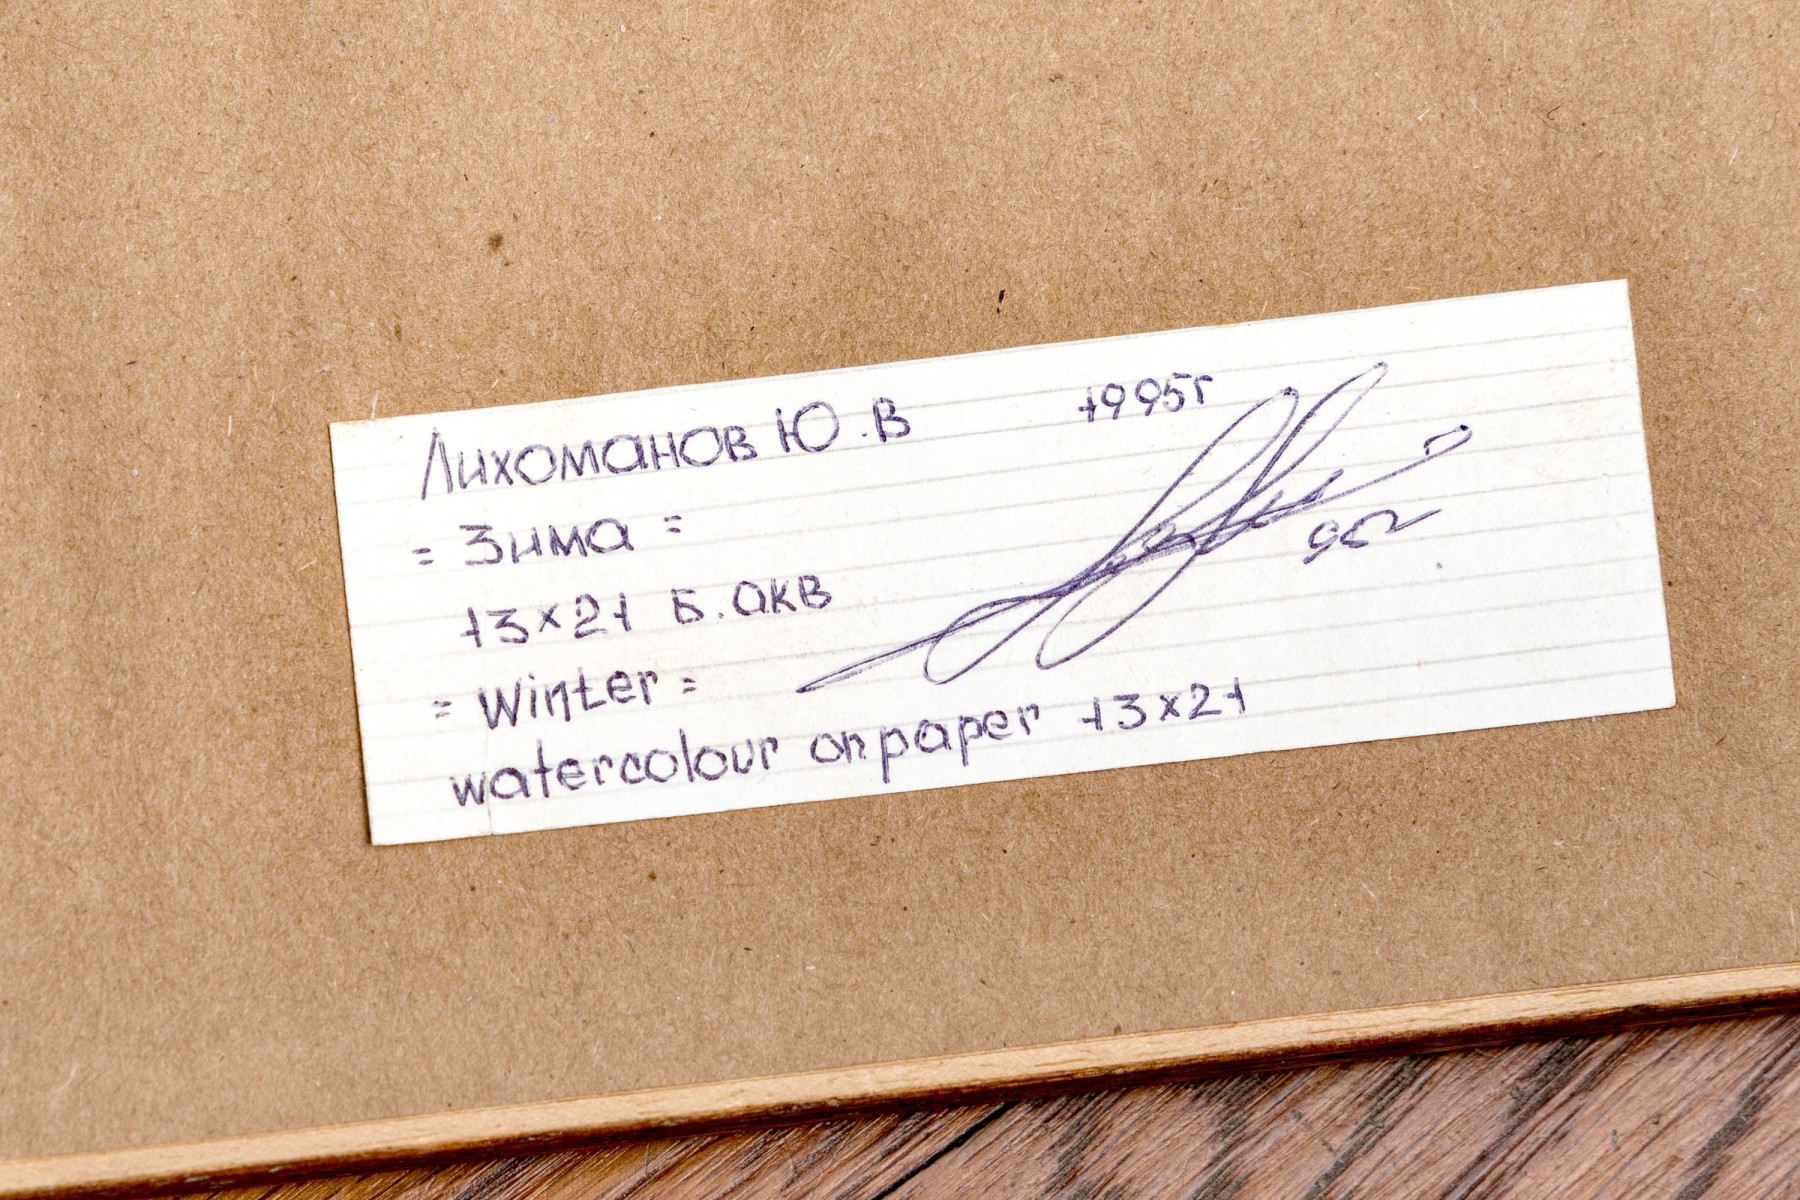 Лихоманов Ю.В 1995г
= Зима =
13×21 Б.акв
95г
= Winter =
watercolour on paper 13×21